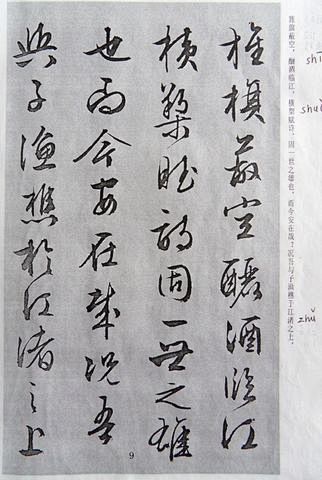 旌旗蔽空，酾酒临江，横槊赋诗，固一世之雄也，而今安在哉？况吾与子渔樵于江渚之上，
旌旗蔽空釃酒臨江
橫槊賦詩固一世之雄
也而今安在哉況吾
與子漁樵於江渚之上
zhǔ
9